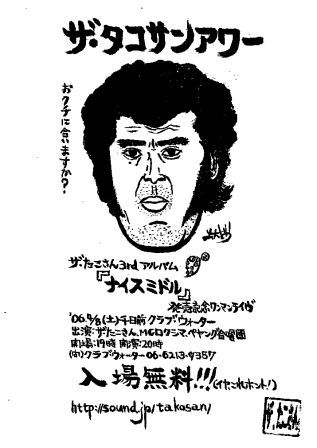 ザ・タコサンアワー
おクチに合いますか?
ザ・たこさん3rdアルバム
『ナイスミドル』
発売記念ワンマンライヴ
'06.9/8(土)千日前クラブ・ウォーター
出演:ザ・たこさん、MCロクシマ、ペヤング合唱團
開場:19時 開演:20時
(め)クラブ・ウォーター 06-6213-9357
入場無料!!!(イヤ、これホント!)
http://sound.jp/takosan/